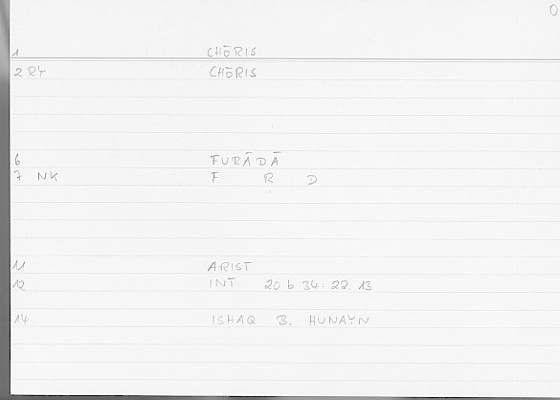 0
1 CHŌRIS
2 RY CHŌRIS
6 FURĀDĀ
7 NK F R D
11 ARIST
12 INT 20 b 34: 22. 13
14 ISHAQ B. HUNAYN